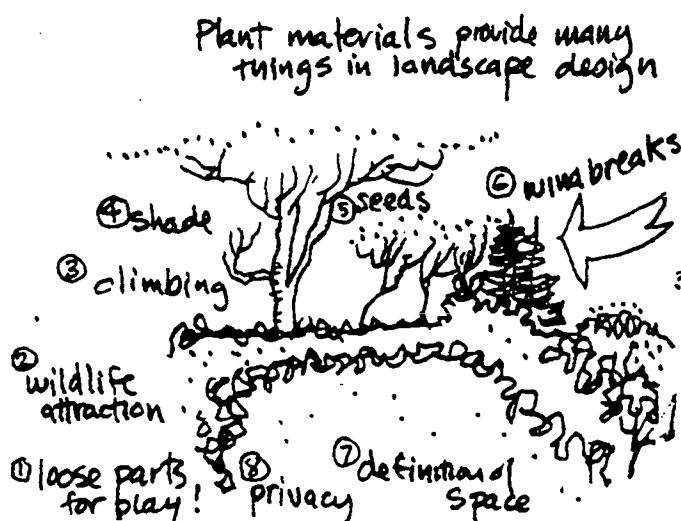 Plant materials provide many
things in landscape design
④ shade
⑤ seeds
⑥ windbreaks
③ climbing
② wildlife
attraction
① loose parts
for play!
⑧ privacy
⑦ definition of
space